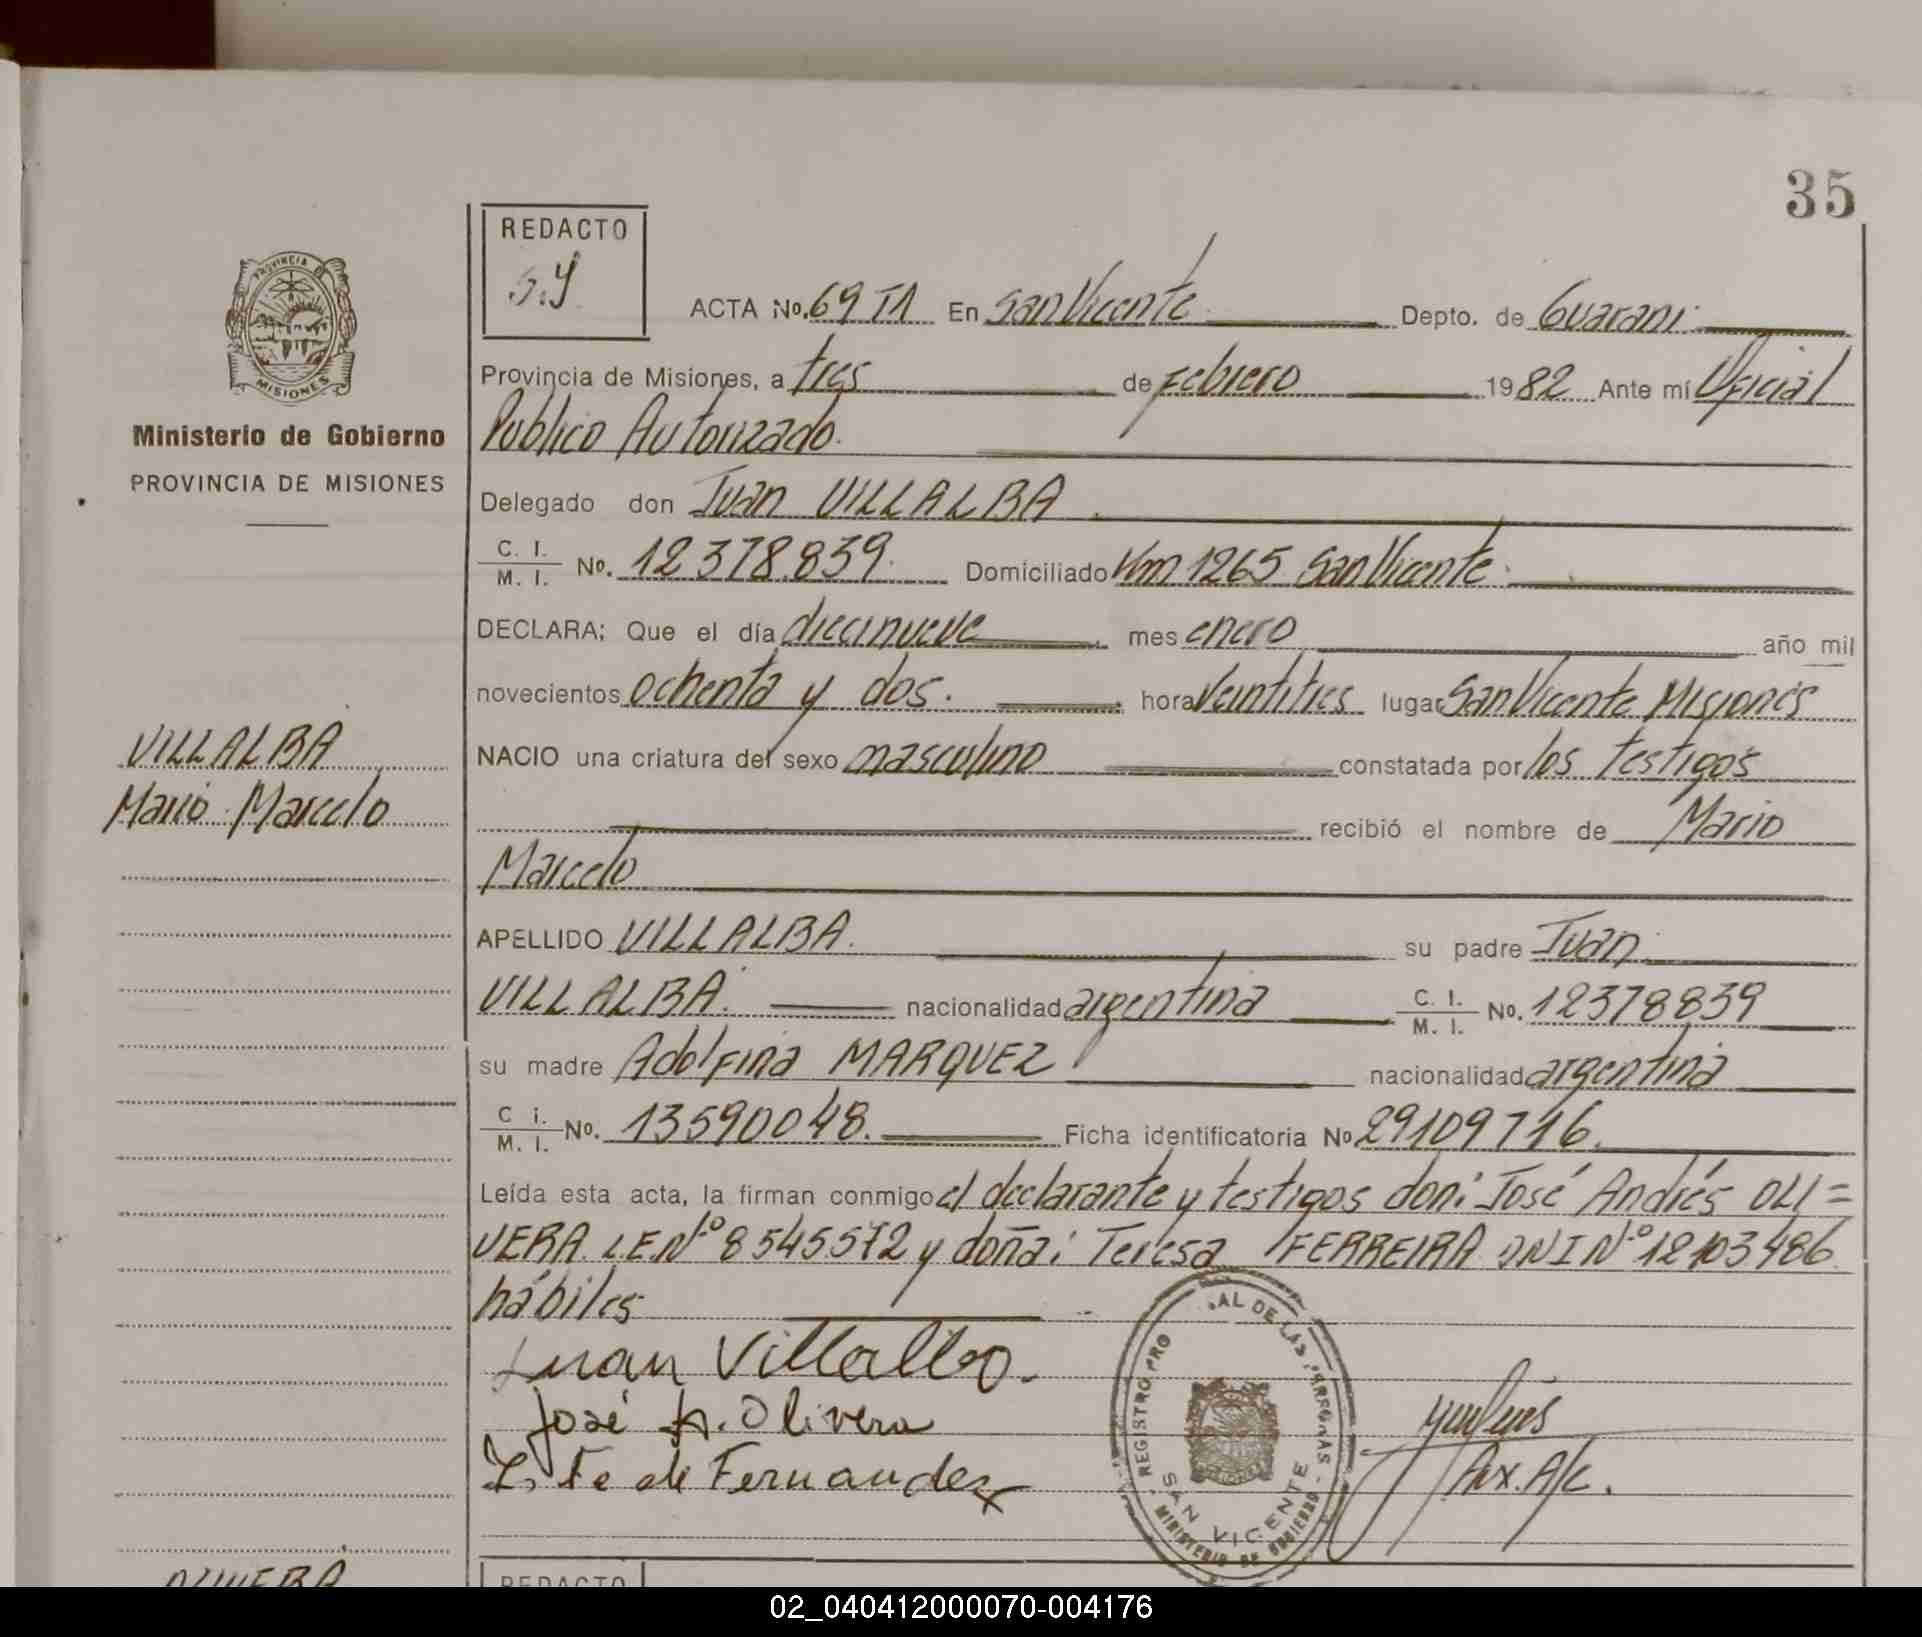 35
REDACTO
S.Y
PROVINCIA DE
MISIONES
Ministerio de Gobierno
PROVINCIA DE MISIONES
ACTA No. 69 T1 En San Vicente Depto. de Guarani
Provincia de Misiones, a tres de Febrero 1982 Ante mí Oficial
Publico Autorizado.
Delegado don Juan VILLALBA
C. I. / M. I. No. 12378.839. Domiciliado Km 1265 San Vicente
DECLARA; Que el día diecinueve mes enero año mil
novecientos ochenta y dos. hora veintitres lugar San Vicente Misiones
VILLALBA
Mario Marcelo
NACIO una criatura del sexo masculino constatada por los testigos
recibió el nombre de Mario
Marcelo
APELLIDO VILLALBA. su padre Juan
VILLALBA. nacionalidad argentina C. I. / M. I. No. 12378839
su madre Adolfina MARQUEZ nacionalidad argentina
C i. / M. I. No. 13590048. Ficha identificatoria No 29109716.
Leída esta acta, la firman conmigo el declarante y testigos don: José Andrés OLI=
VERA L.E.Nº 8545572 y doña: Teresa FERREIRA DNI Nº 12103486
hábiles
Juan Villalba.
José A. Olivera
de Fernandez
REGISTRO PRO AL DE LAS PERSONAS
SAN VICENTE
MINISTERIO DE GOBIERNO
Aux. A/C.
REDACTO
OLIVERA
02_040412000070-004176